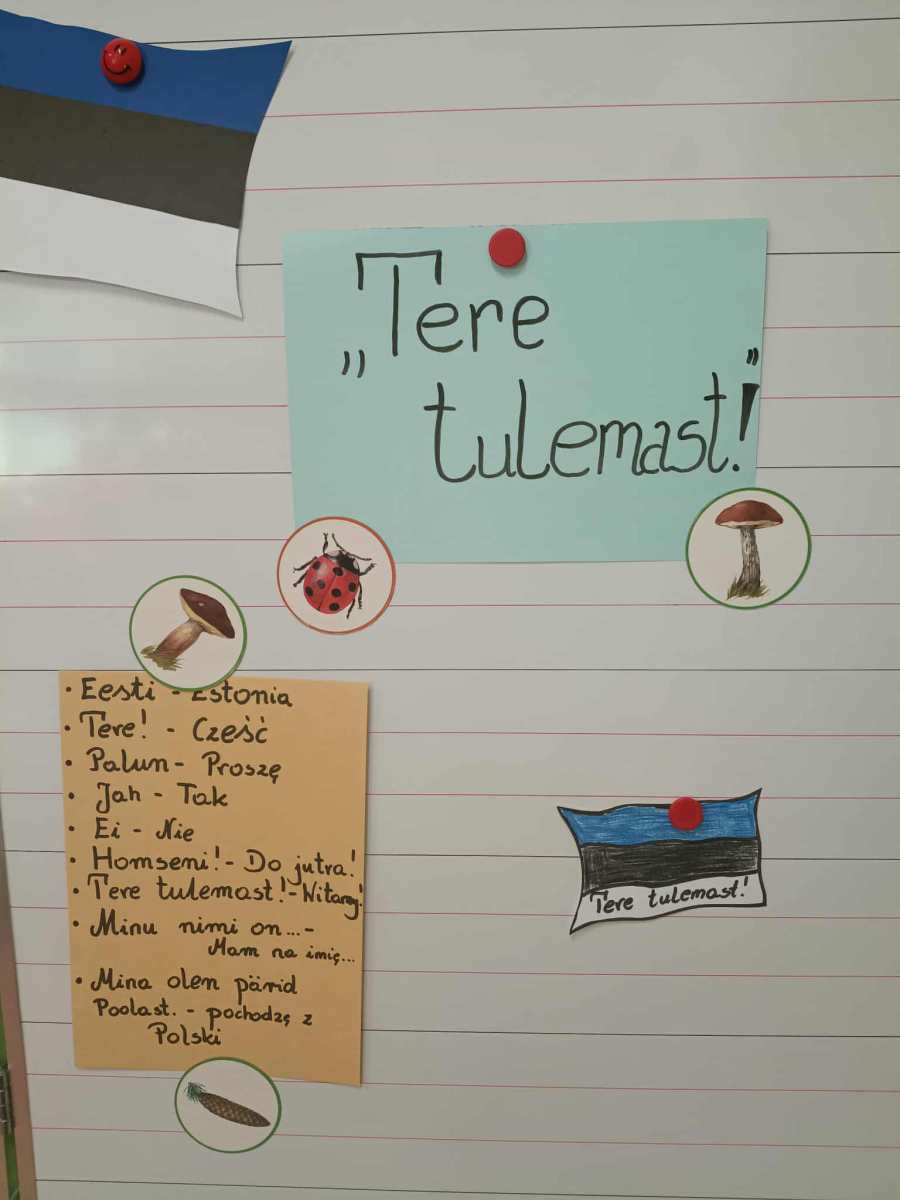 „Tere
tulemast!"
• Eesti - Estonia
• Tere! - Cześć
• Palun - Proszę
• Jah - Tak
• Ei - Nie
• Homseni! - Do jutra!
• Tere tulemast! - Witamy!
• Minu nimi on... -
Mam na imię...
• Mina olen pärid
Poolast. - pochodzę z
Polski
Tere tulemast!